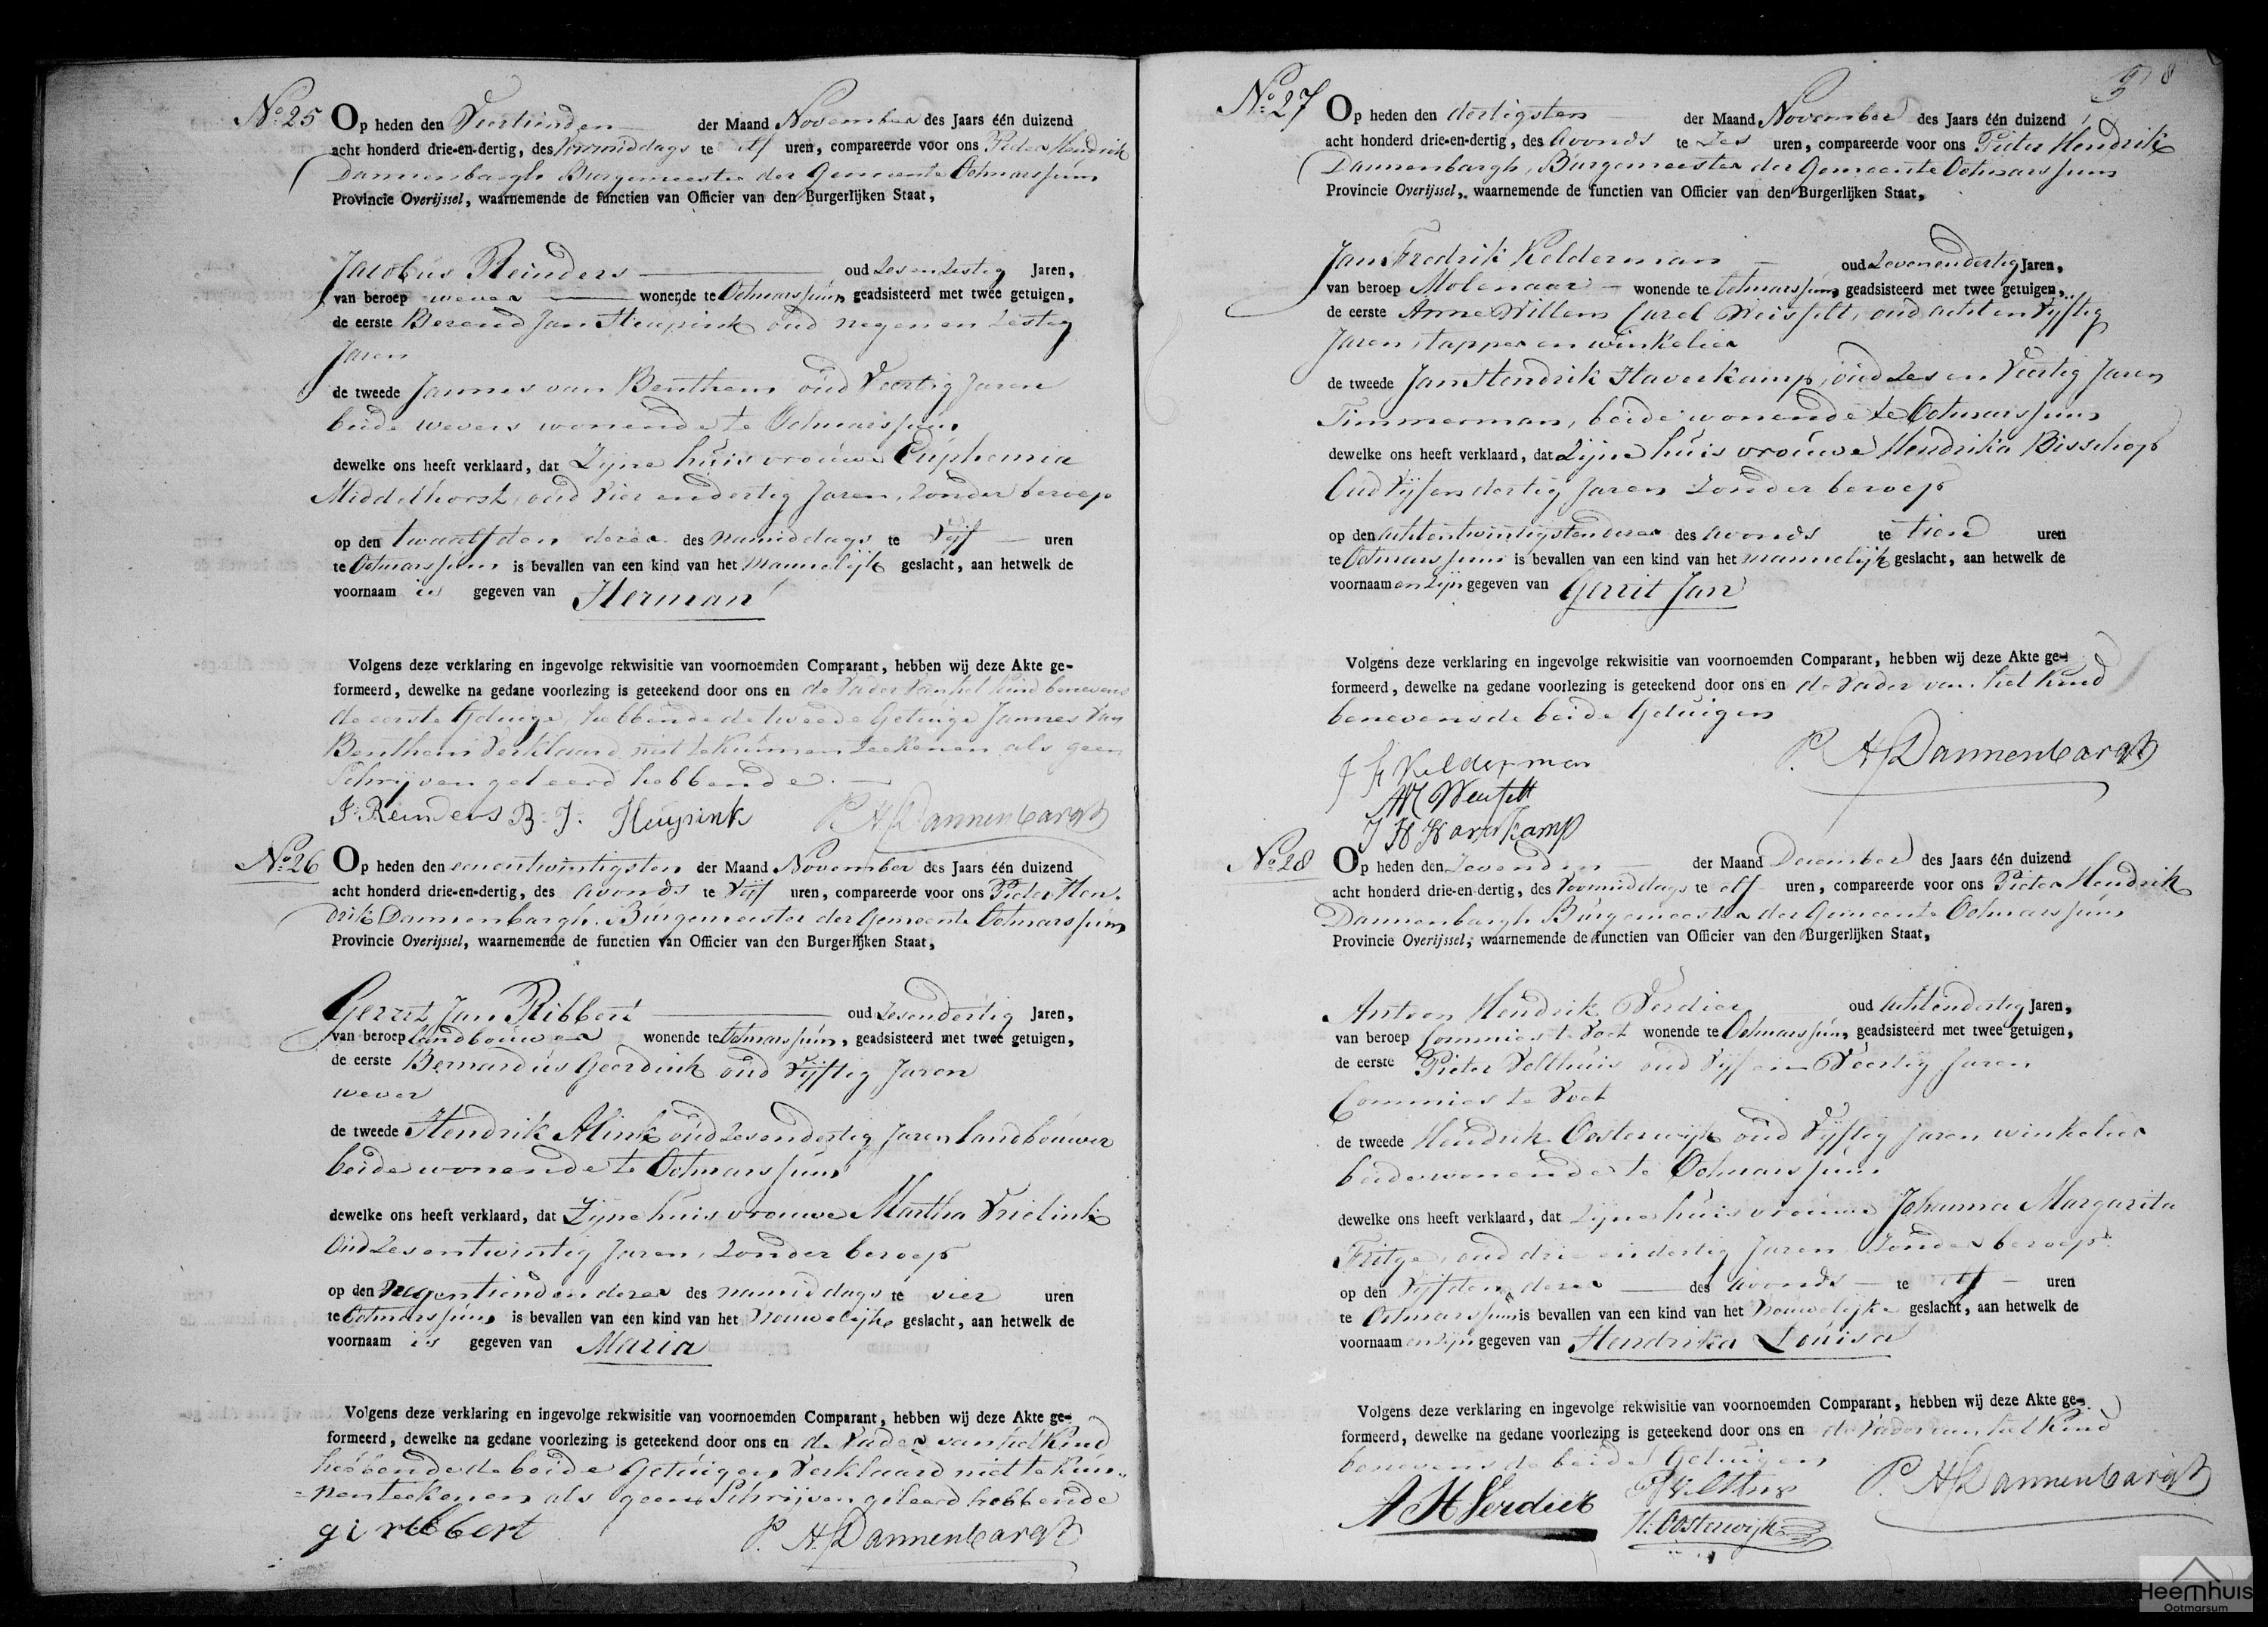 No. 25 Op heden den Veertienden der Maand November des Jaars één duizend
acht honderd drie-en-dertig, des Voormiddags te elf uren, compareerde voor ons Pieter Hendrik
Dannenbargh Burgemeester der Gemeente Ootmarssum
Provincie Overijssel, waarnemende de functien van Officier van den Burgerlijken Staat,
Jacobus Reinders oud Zesenzestig Jaren,
van beroep wever wonende te Ootmarssum, geadsisteerd met twee getuigen,
de eerste Berend Jan Heupink oud negen en Zestig
Jaren
de tweede Jannes van Benthem oud Veertig Jaren
beide wevers wonende te Ootmarssum
dewelke ons heeft verklaard, dat Zijne huisvrouwe Euphemia
Middelhorst, oud Vier endertig Jaren, Zonder beroep
op den twaalfden dezer des namiddags te Vijf uren
te Ootmarssum is bevallen van een kind van het mannelijk geslacht, aan hetwelk de
voornaam is gegeven van Herman
Volgens deze verklaring en ingevolge rekwisitie van voornoemden Comparant, hebben wij deze Akte ge-
formeerd, dewelke na gedane voorlezing is geteekend door ons en de Vader van het Kind benevens
de eerste Getuige, hebbende de tweede Getuige Jannes van
Benthem Verklaard niet te kunnen teekenen als geen
Schrijven geleerd hebbende.
J: Reinders B: J: Heupink P. H. Dannenbargh
No. 26 Op heden den eenentwintigsten der Maand November des Jaars één duizend
acht honderd drie-en-dertig, des avonds te Vijf uren, compareerde voor ons Pieter Hen-
drik Dannenbargh, Burgemeester der Gemeente Ootmarssum
Provincie Overijssel, waarnemende de functien van Officier van den Burgerlijken Staat,
Gerrit Jan Ribbert oud Zesendertig Jaren,
van beroep landbouwer wonende te Ootmarssum, geadsisteerd met twee getuigen,
de eerste Bernardus Geerdink oud Vijftig Jaren
wever
de tweede Hendrik Alink oud Zesendertig Jaren landbouwer
beide wonende te Ootmarssum
dewelke ons heeft verklaard, dat Zijne huisvrouwe Martha Vrielink
Oud Zesentwintig Jaren, Zonder beroep
op den negentienden dezer des namiddags te vier uren
te Ootmarssum is bevallen van een kind van het Vrouwelijk geslacht, aan hetwelk de
voornaam is gegeven van Maria
Volgens deze verklaring en ingevolge rekwisitie van voornoemden Comparant, hebben wij deze Akte ge-
formeerd, dewelke na gedane voorlezing is geteekend door ons en de Vader van het Kind
hebbende de beide Getuigen Verklaard niet te kun-
nen teekenen als geen Schrijven geleerd hebbende
g i ribbert P. H. Dannenbargh
No. 27 Op heden den dertigsten der Maand November des Jaars één duizend
acht honderd drie-en-dertig, des Avonds te Zes uren, compareerde voor ons Pieter Hendrik
Dannenbargh, Burgemeester der Gemeente Ootmarssum
Provincie Overijssel, waarnemende de functien van Officier van den Burgerlijken Staat,
Jan Fredrik Kelderman oud Zevenendertig Jaren,
van beroep Molenaar wonende te Ootmarssum, geadsisteerd met twee getuigen,
de eerste Anne Willem Carel Weisfelt, oud acht en Vijftig
Jaren, tapper en winkelier
de tweede Jan Hendrik Haverkamp, oud Zes en Veertig Jaren
Timmerman, beide wonende te Ootmarssum
dewelke ons heeft verklaard, dat Zijne huisvrouwe Hendrika Bisschop
Oud Vijfendertig Jaren Zonder beroep
op den achtentwintigsten dezer des avonds te tien uren
te Ootmarssum is bevallen van een kind van het mannelijk geslacht, aan hetwelk de
voornaamen zijn gegeven van Gerrit Jan
Volgens deze verklaring en ingevolge rekwisitie van voornoemden Comparant, hebben wij deze Akte ge-
formeerd, dewelke na gedane voorlezing is geteekend door ons en de Vader van het Kind
benevens de beide Getuigen
J F Kelderman P. H. Dannenbargh
J H Haverkamp
No. 28 Op heden den Zevenden der Maand December des Jaars één duizend
acht honderd drie-en-dertig, des Voormiddags te elf uren, compareerde voor ons Pieter Hendrik
Dannenbargh Burgemeester der Gemeente Ootmarssum
Provincie Overijssel, waarnemende de functien van Officier van den Burgerlijken Staat,
Antoon Hendrik Verdier oud achtendertig Jaren,
van beroep Commies te Voet wonende te Ootmarssum, geadsisteerd met twee getuigen,
de eerste Pieter Velthuis oud Vijf en Veertig Jaren
Commies te Voet
de tweede Hendrik Oosterwijk oud Vijftig Jaren winkelier
beide wonende te Ootmarssum
dewelke ons heeft verklaard, dat Zijne huisvrouwe Johanna Margarita
Fritge, oud drie endertig Jaren Zonder beroep
op den Vijfden dezer des avonds te elf uren
te Ootmarssum is bevallen van een kind van het Vrouwelijke geslacht, aan hetwelk de
voornaam en zijn gegeven van Hendrika Louisa
Volgens deze verklaring en ingevolge rekwisitie van voornoemden Comparant, hebben wij deze Akte ge-
formeerd, dewelke na gedane voorlezing is geteekend door ons en de Vader van het Kind
benevens de beide Getuigen
A H Verdier P. H. Dannenbargh
H. Oosterwijk
Heemhuis
Ootmarsum